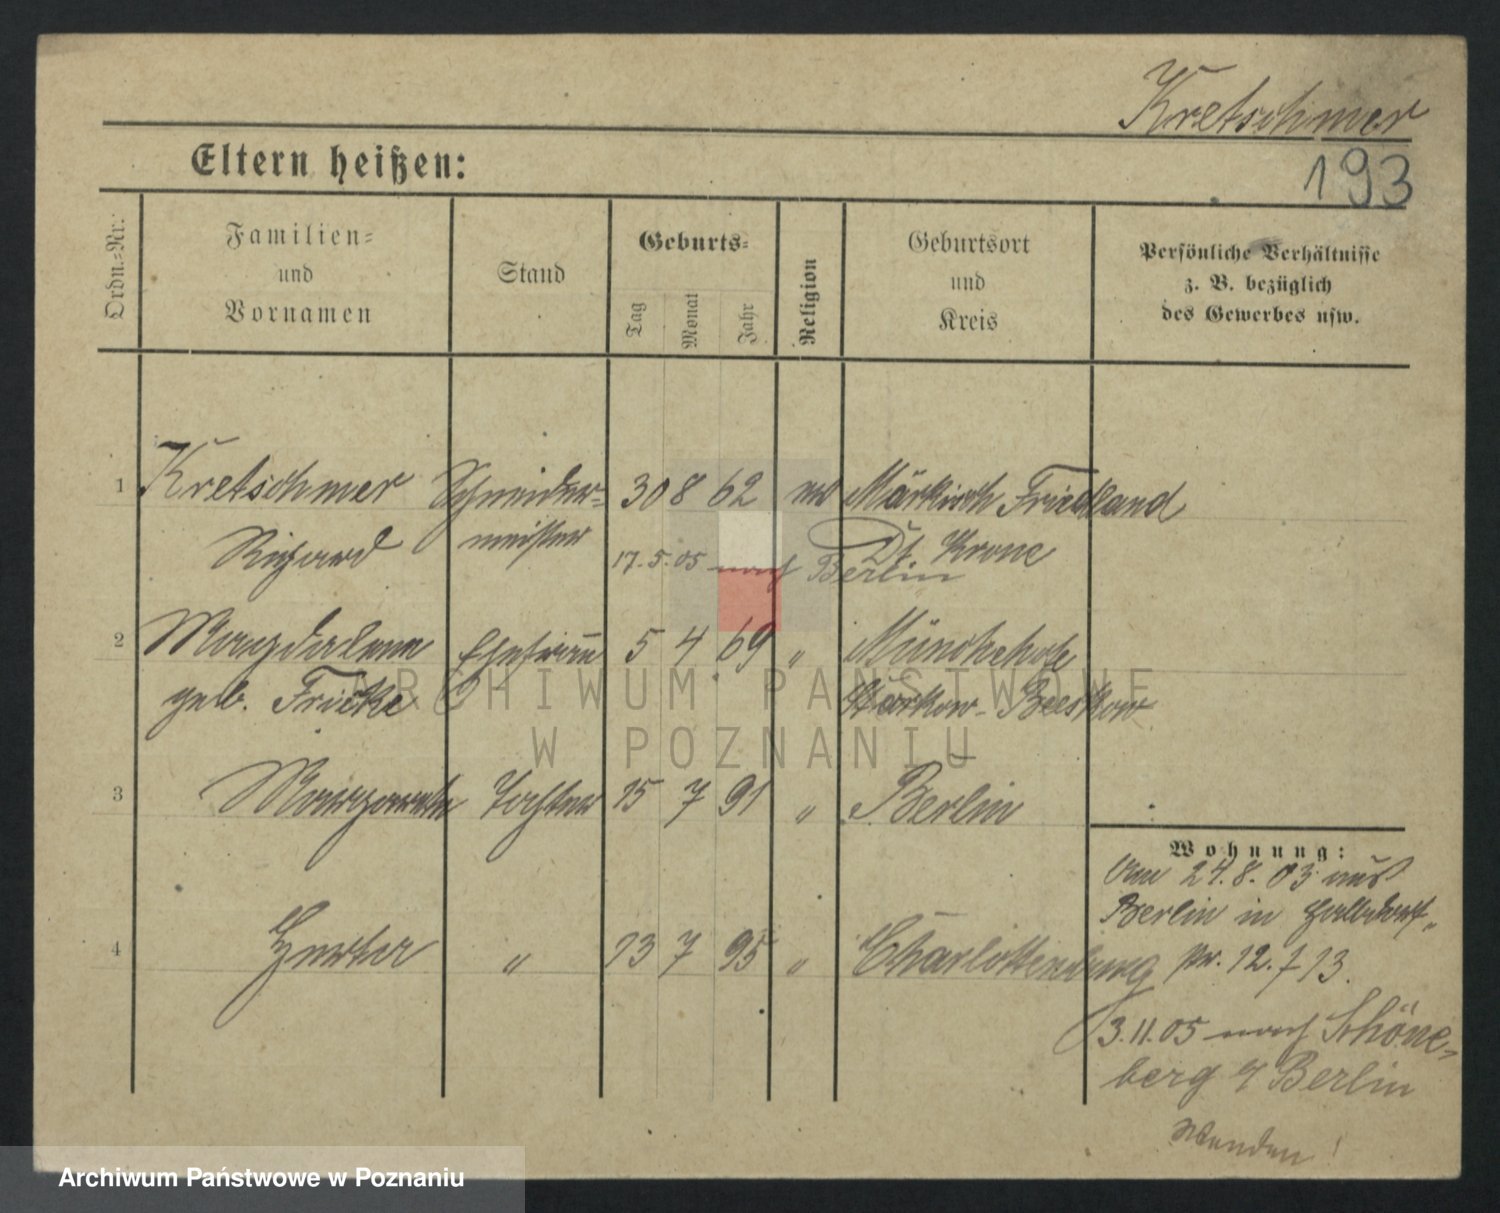 Kretschmer
Eltern heißen:
193
Ordn.-Nr.
Familien-
und
Vornamen
Stand
Geburts-
Tag
Monat
Jahr
Religion
Geburtsort
und
Kreis
Persönliche Verhältnisse
z. B. bezüglich
des Gewerbes usw.
1 Kretschmer Schneider- 30 8 62 ev Märkisch Friedland
Richard meister Dt. Krone
17. 5. 05 nach Berlin
2 Magdalene Ehefrau 5 4 69 " Münchehofe
geb. Fricke Storkow-Beeskow
3 Margarete Tochter 15 7 91 " Berlin
4 Herta " 13 7 95 " Charlottenburg
Wohnung:
Am 24.8.03 aus
Berlin in
Str. 12. 13.
3.11.05 nach Schöne-
berg b Berlin
Wenden!
ARCHIWUM PAŃSTWOWE
W POZNANIU
Archiwum Państwowe w Poznaniu